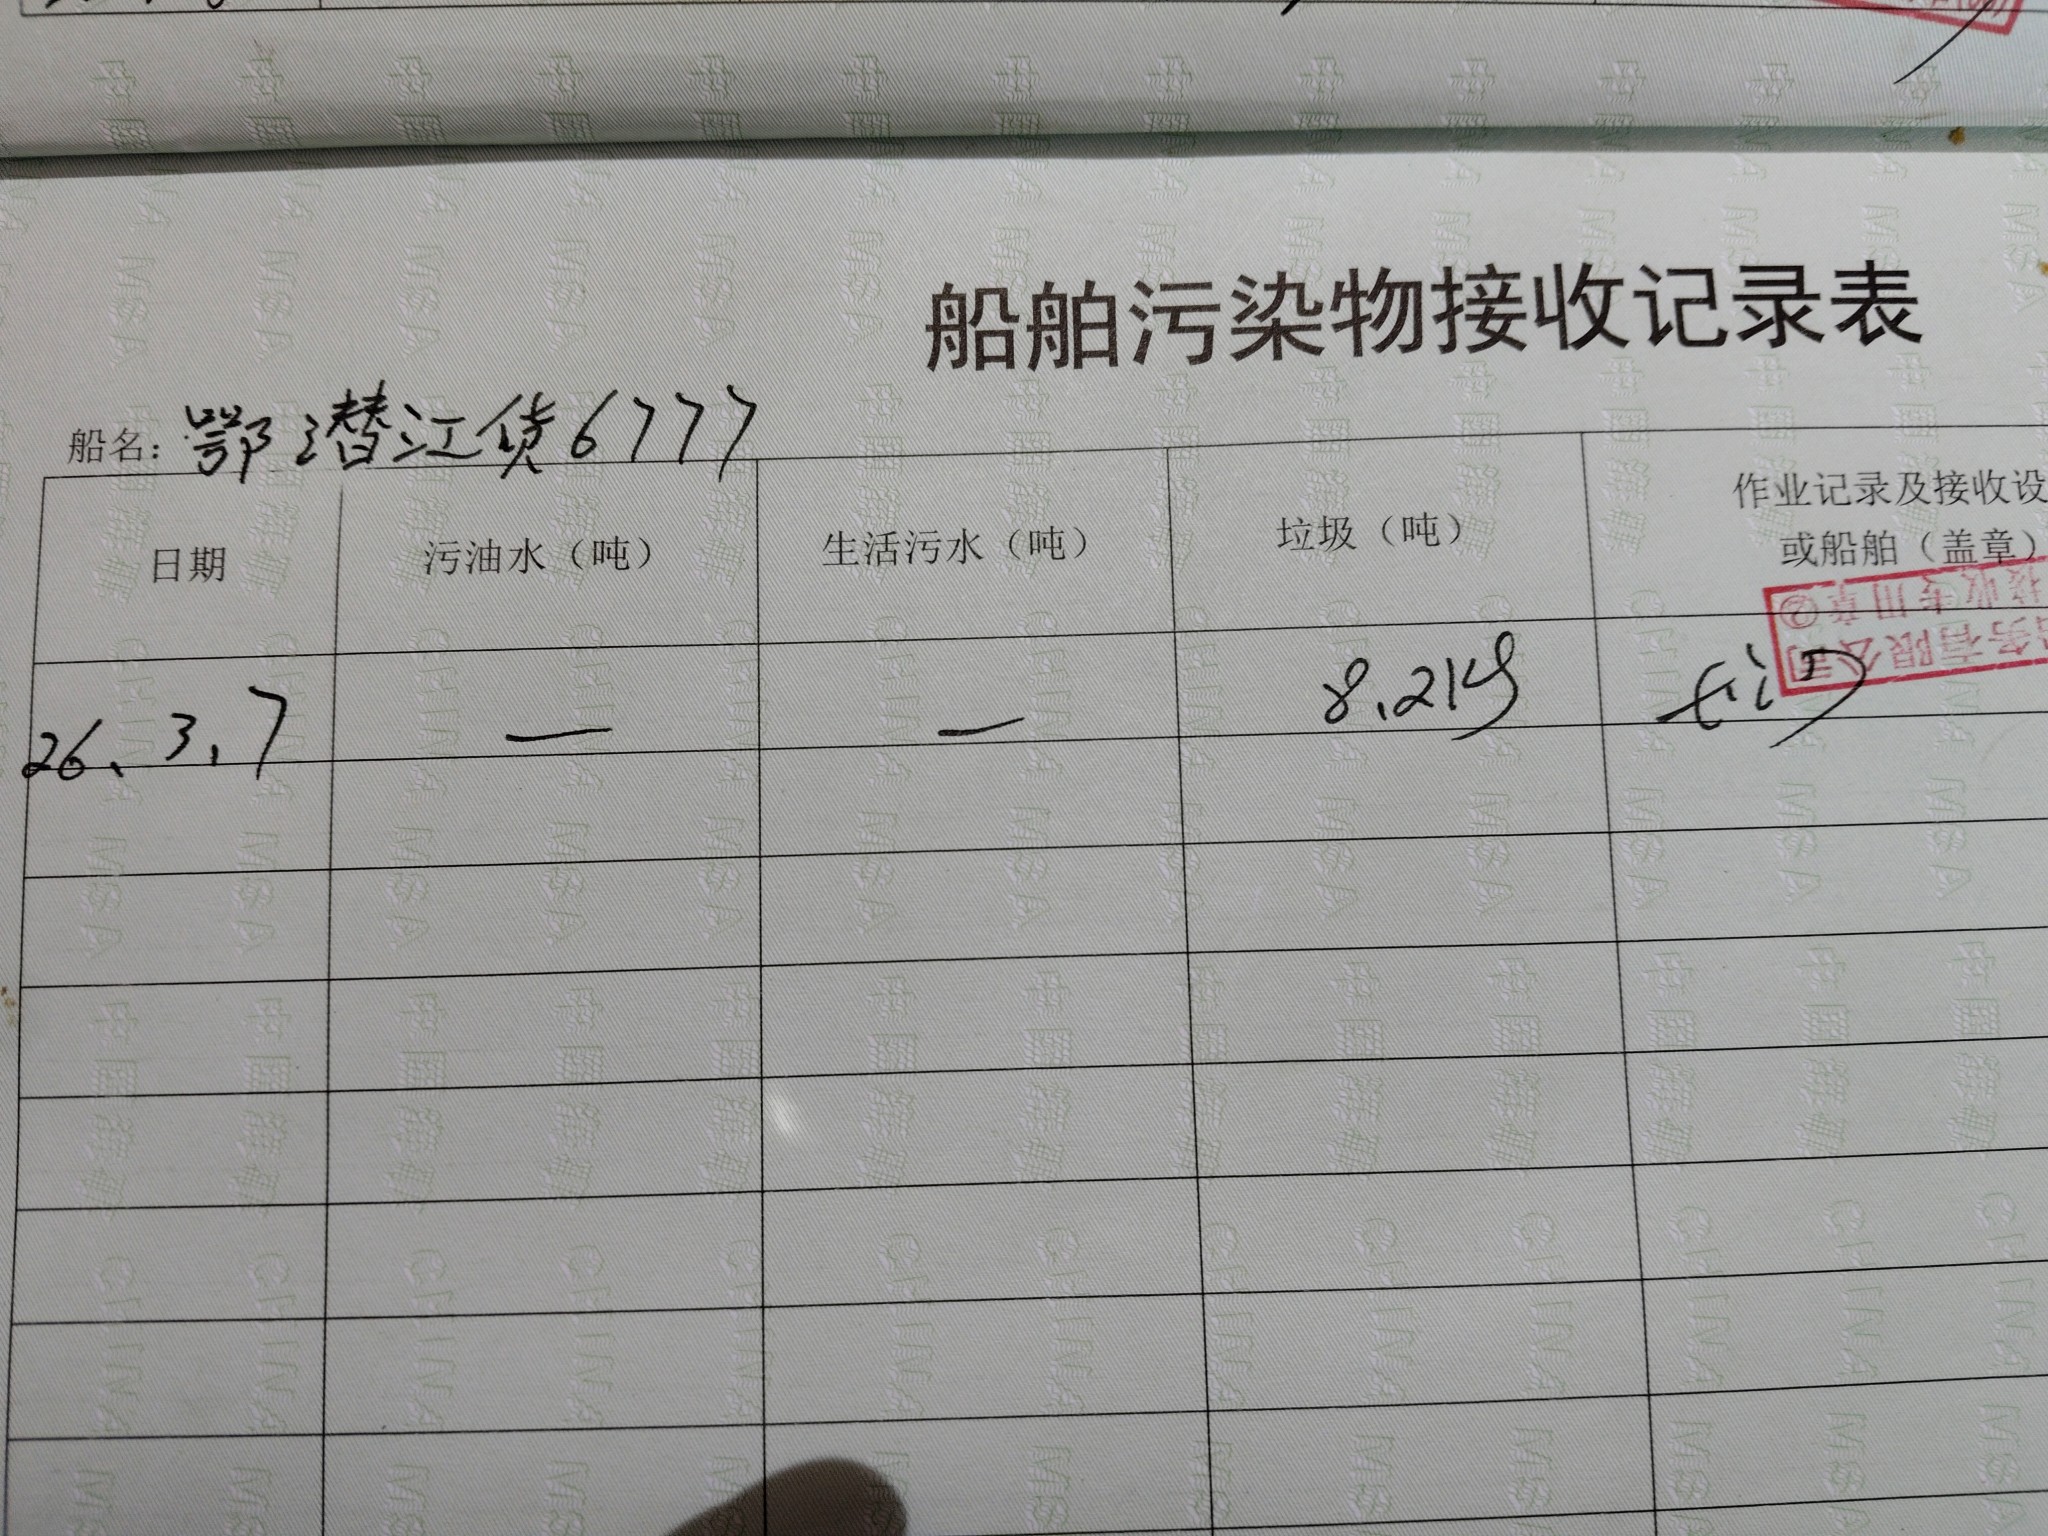 船舶污染物接收记录表
船名：鄂潜江货6777
日期 污油水（吨） 生活污水（吨） 垃圾（吨） 作业记录及接收设
或船舶（盖章）
接收专用章②
务有限公司
26.3.7 — — 8.2kg
中国海事 CHINA MSA